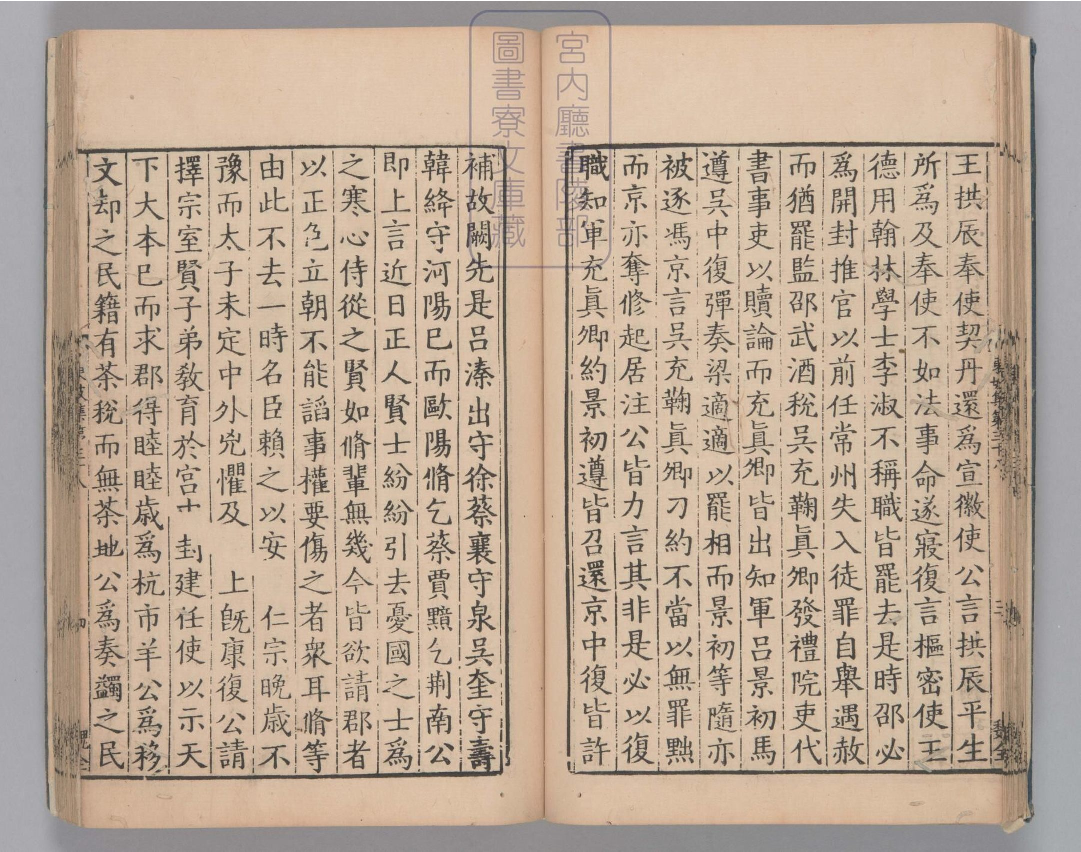 王拱辰奉使契丹還爲宣徽使公言拱辰平生
所爲及奉使不如法事命遂寢復言樞密使王
德用翰林學士李淑不稱職皆罷去是時邵必
爲開封推官以前任常州失入徒罪自舉遇赦
而猶罷監邵武酒稅吳充鞠眞卿發禮院吏代
書事吏以贖論而充眞卿皆出知軍呂景初馬
遵吳中復彈奏梁適適以罷相而景初等隨亦
被逐馮京言吳充鞠眞卿刁約不當以無罪黜
而京亦奪修起居注公皆力言其非是必以復
職知軍充眞卿約景初遵皆召還京中復皆許
補故闕先是呂溱出守徐蔡襄守泉吳奎守壽
韓絳守河陽已而歐陽脩乞蔡賈黯乞荆南公
即上言近日正人賢士紛紛引去憂國之士爲
之寒心侍從之賢如脩輩無幾今皆欲請郡者
以正色立朝不能謟事權要傷之者衆耳脩等
由此不去一時名臣賴之以安 仁宗晚歲不
豫而太子未定中外兇懼及 上旣康復公請
擇宗室賢子弟敎育於宮 封建任使以示天
下大本已而求郡得睦睦歲爲杭市羊公爲移
文却之民籍有茶稅而無茶地公爲奏蠲之民
宮內廳書陵部
圖書寮文庫藏